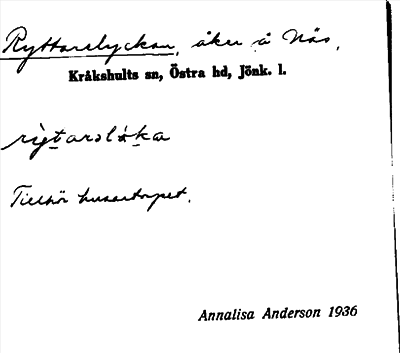 Ryttarelyckan, åker å Näs,
Kråkshults sn, Östra hd, Jönk. l.
rỳtarslɷ́ka
Tillhör husartorpet.
Annalisa Anderson 1936